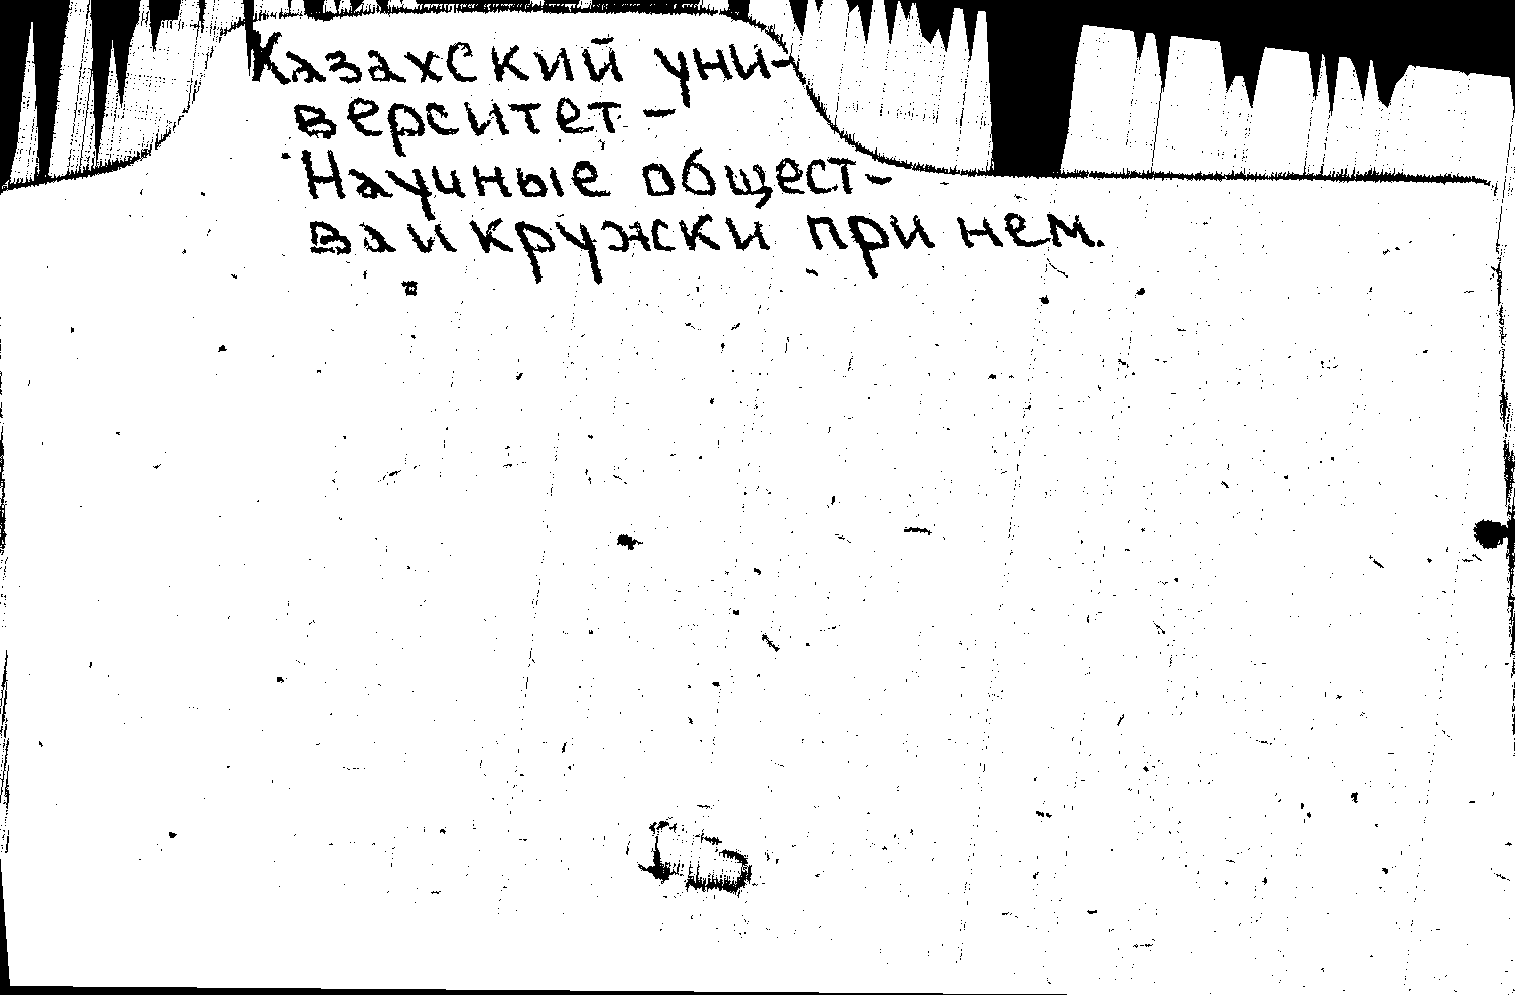 Казахский уни-
верситет -
Научные общест-
ва и кружки при нем.